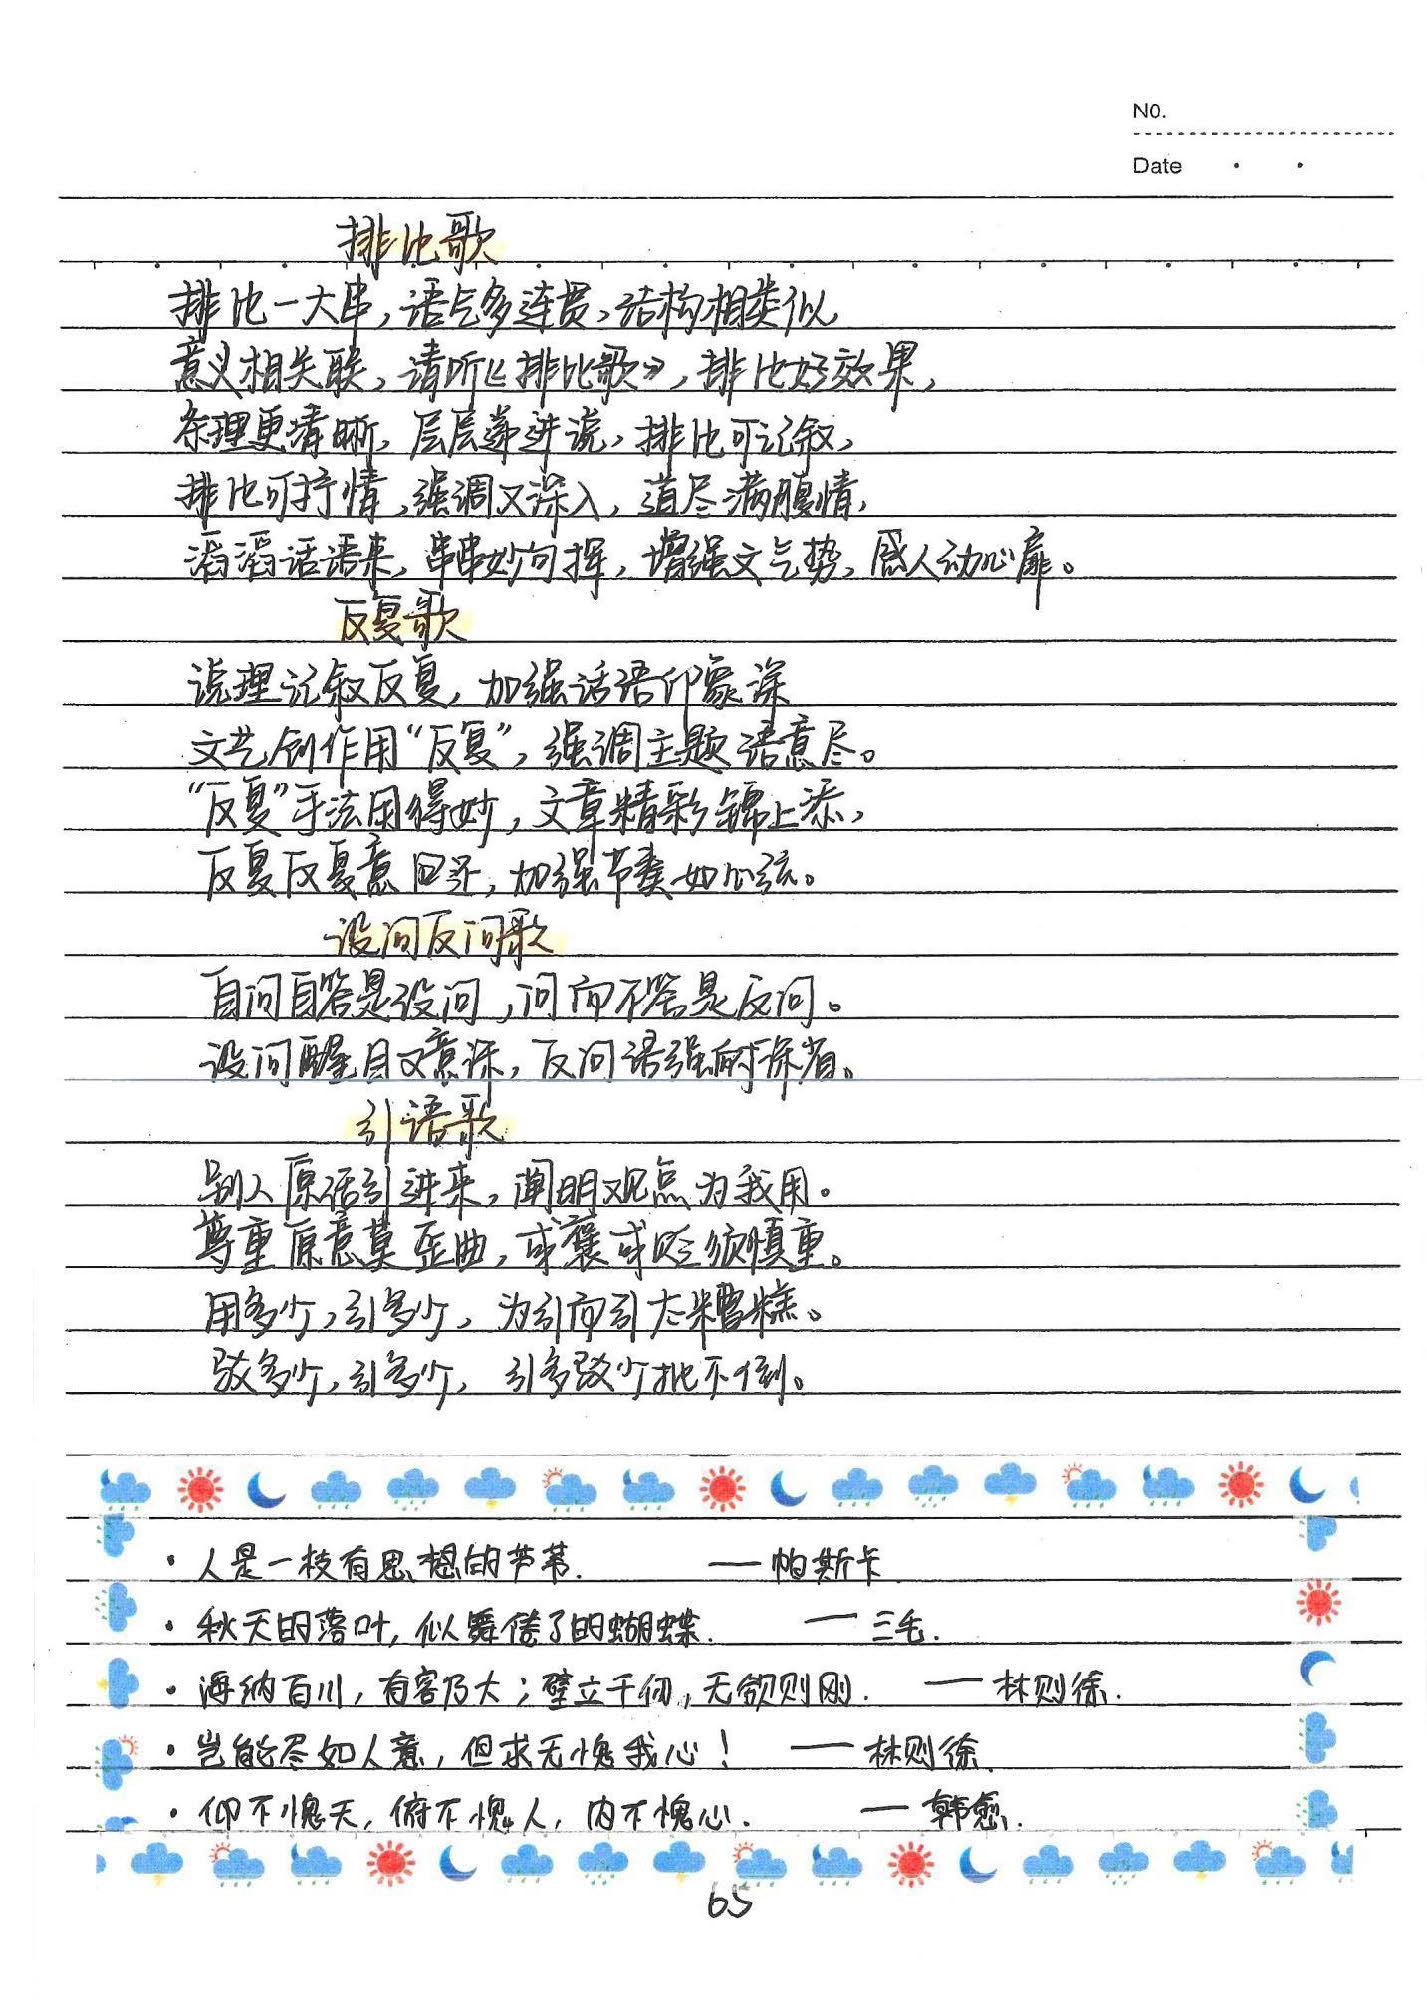 NO.
Date
排比歌
排比一大串,语气多连贯,结构相类似
意义相关联,请听《排比歌》,排比好效果,
条理更清晰,层层递进说,排比可记叙,
排比可抒情,强调又深入,道尽满腹情,
滔滔话语来,串串妙句挥,增强文气势,感人动心扉。
反复歌
说理记叙反复,加强话语印象深
文艺创作用“反复”,强调主题语意尽。
“反复”手法用得妙,文章精彩锦上添,
反复反复意回还,加强节奏如心弦。
设问反问歌
自问自答是设问,问而不答是反问。
设问醒目又意深,反问语强耐深省。
引语歌
别人原话引进来,阐明观点为我用。
尊重原意莫歪曲,或褒或贬须慎重。
用多少,引多少,为引而引太糟糕。
驳多少,引多少,引多驳少批不倒。
·人是一枝有思想的芦苇. ——帕斯卡
·秋天的落叶,似舞倦了的蝴蝶. ——三毛.
·海纳百川,有容乃大;壁立千仞,无欲则刚. ——林则徐.
·岂能尽如人意,但求无愧我心! ——林则徐.
·仰不愧天,俯不愧人,内不愧心. ——韩愈.
65